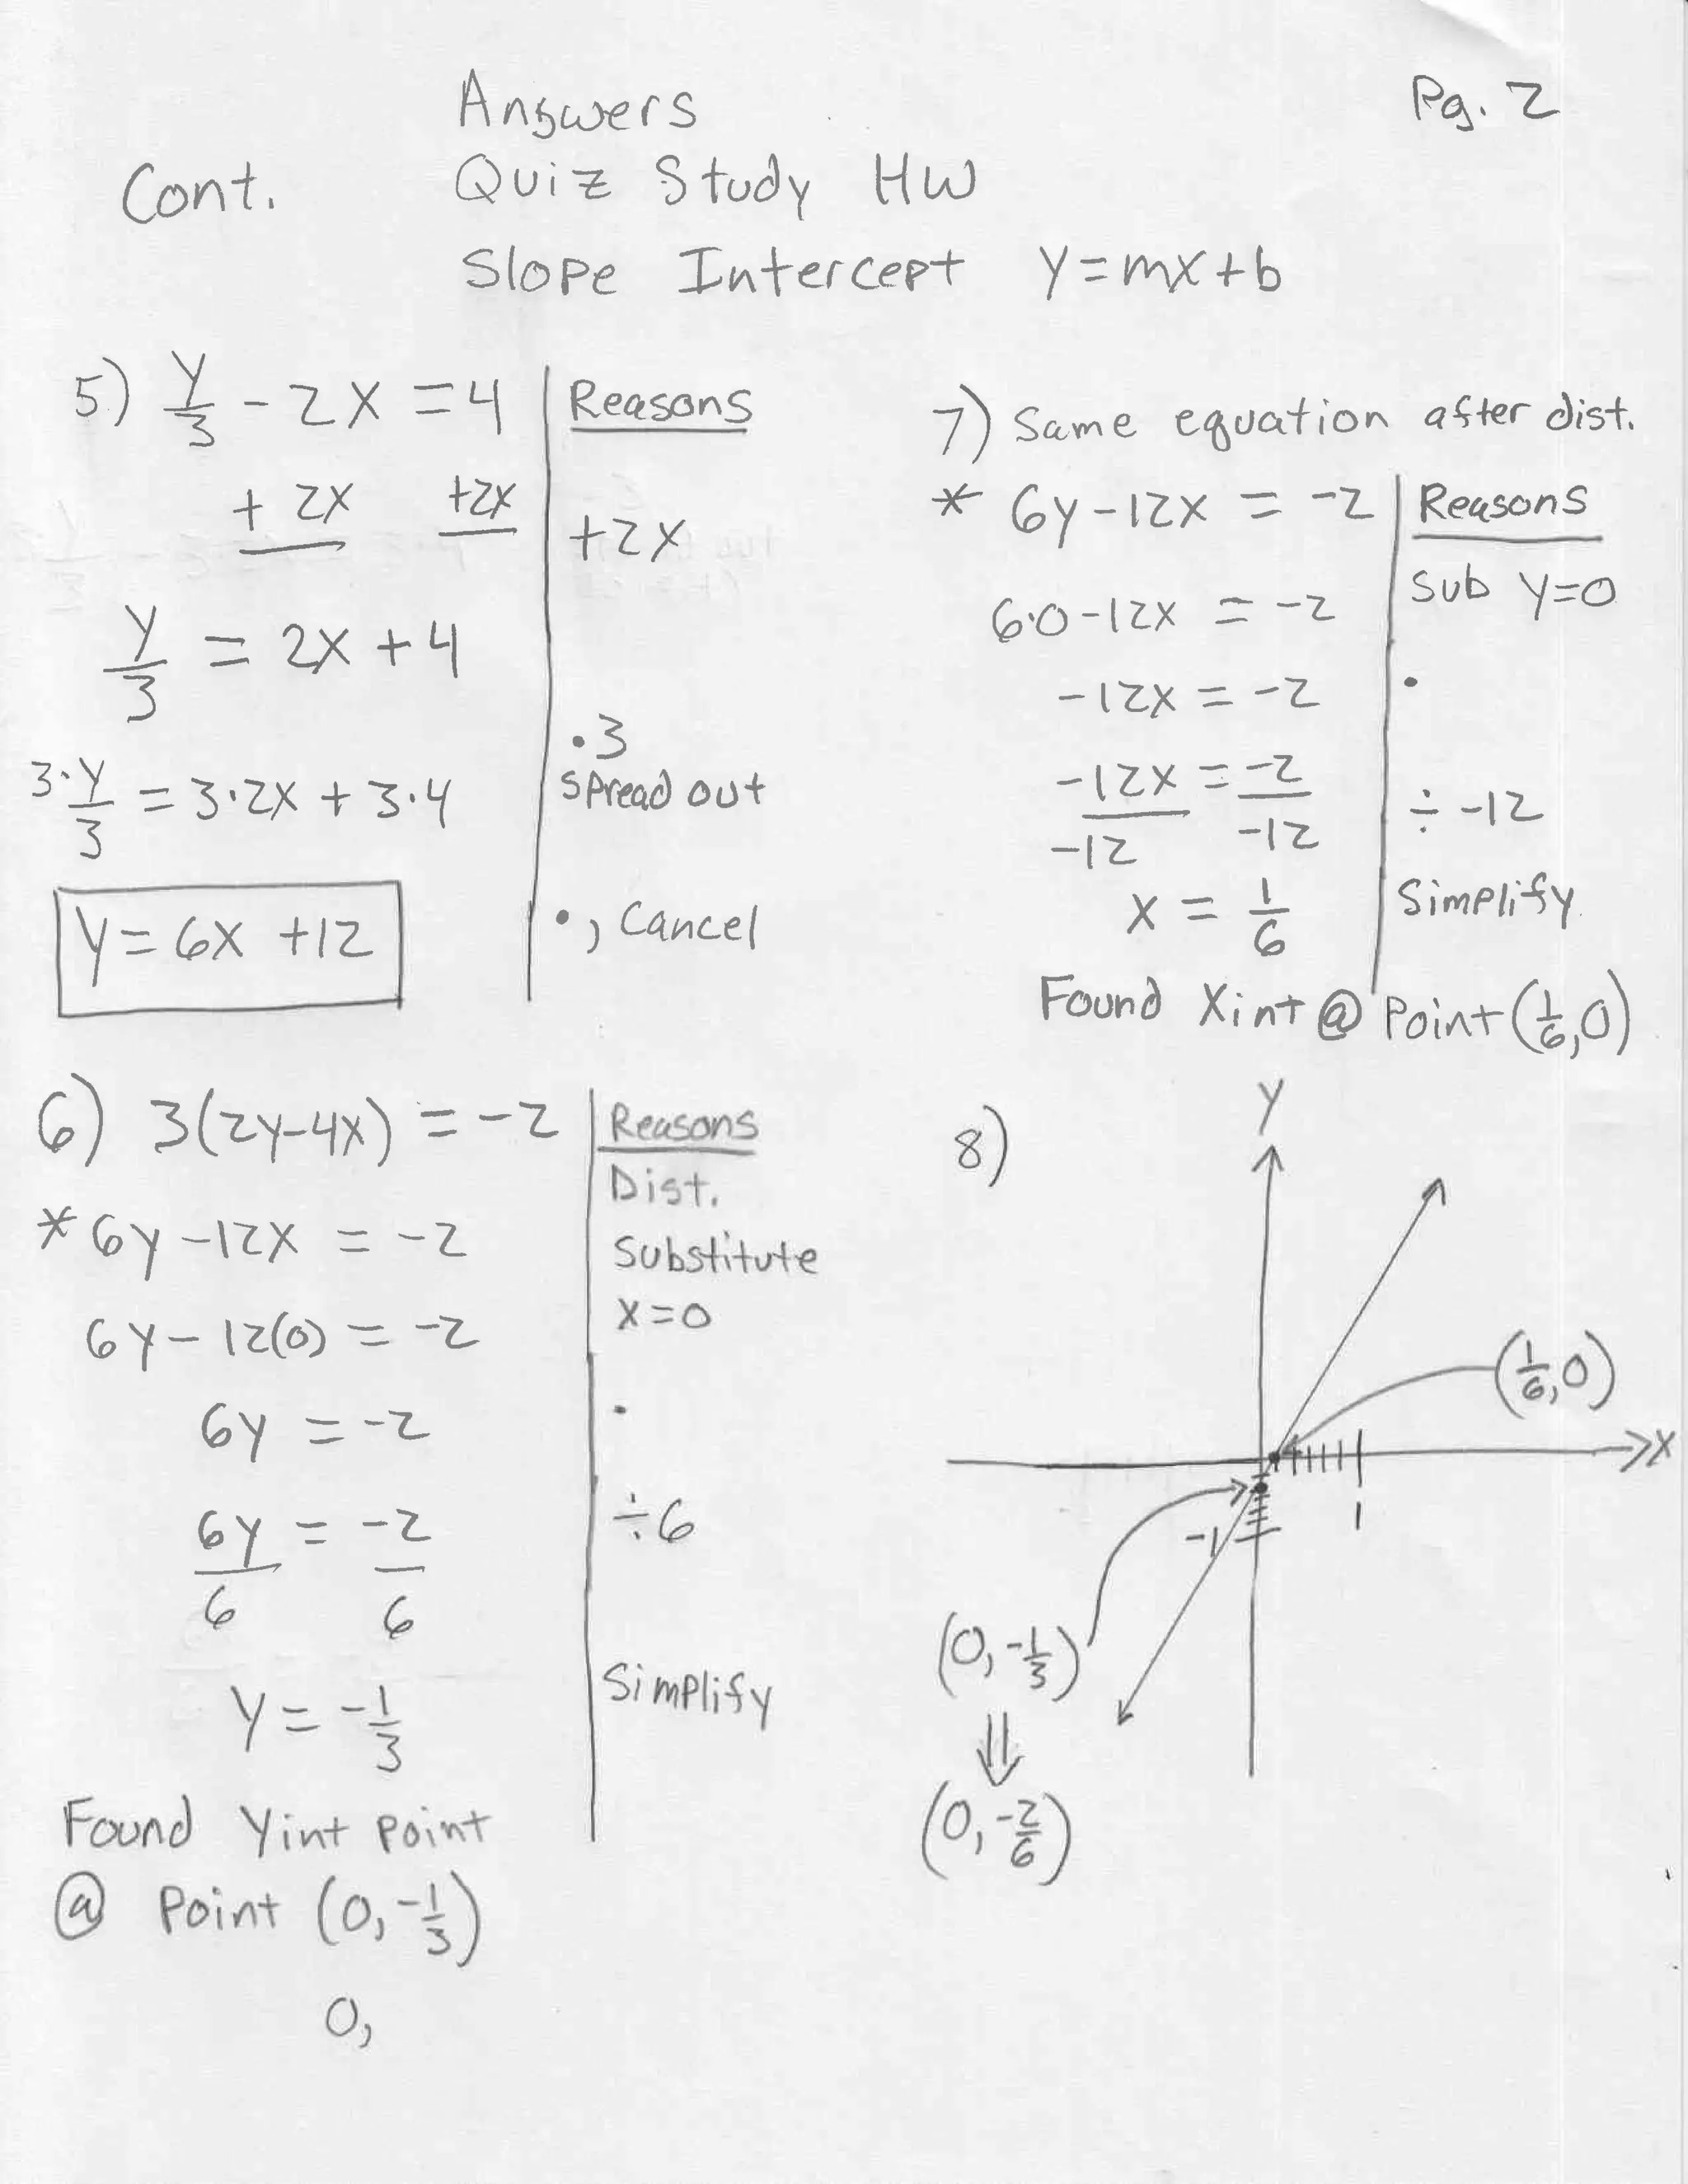 Answers
Pg. 2
Cont.
Quiz Study HW
Slope Intercept y=mx+b
5) y/3 - 2x = 4
Reasons
+2x +2x
+2x
y/3 = 2x + 4
·3
spread out
3·y/3 = 3·2x + 3·4
y = 6x + 12
·, Cancel
6) 3(2y-4x) = -2
Reasons
Dist.
*6y - 12x = -2
Substitute
x=0
6y - 12(0) = -2
6y = -2
·
6y/6 = -2/6
÷6
y = -1/3
Simplify
Found Yint point
@ Point (0, -1/3)
0,
7) Same equation after dist.
* 6y - 12x = -2
Reasons
Sub y=0
6·0 - 12x = -2
-12x = -2
·
-12x/-12 = -2/-12
÷ -12
x = 1/6
Simplify
Found Xint @ Point (1/6, 0)
8)
Y
(1/6, 0)
X
1
-1
(0, -1/3)
⇓
(0, -2/6)